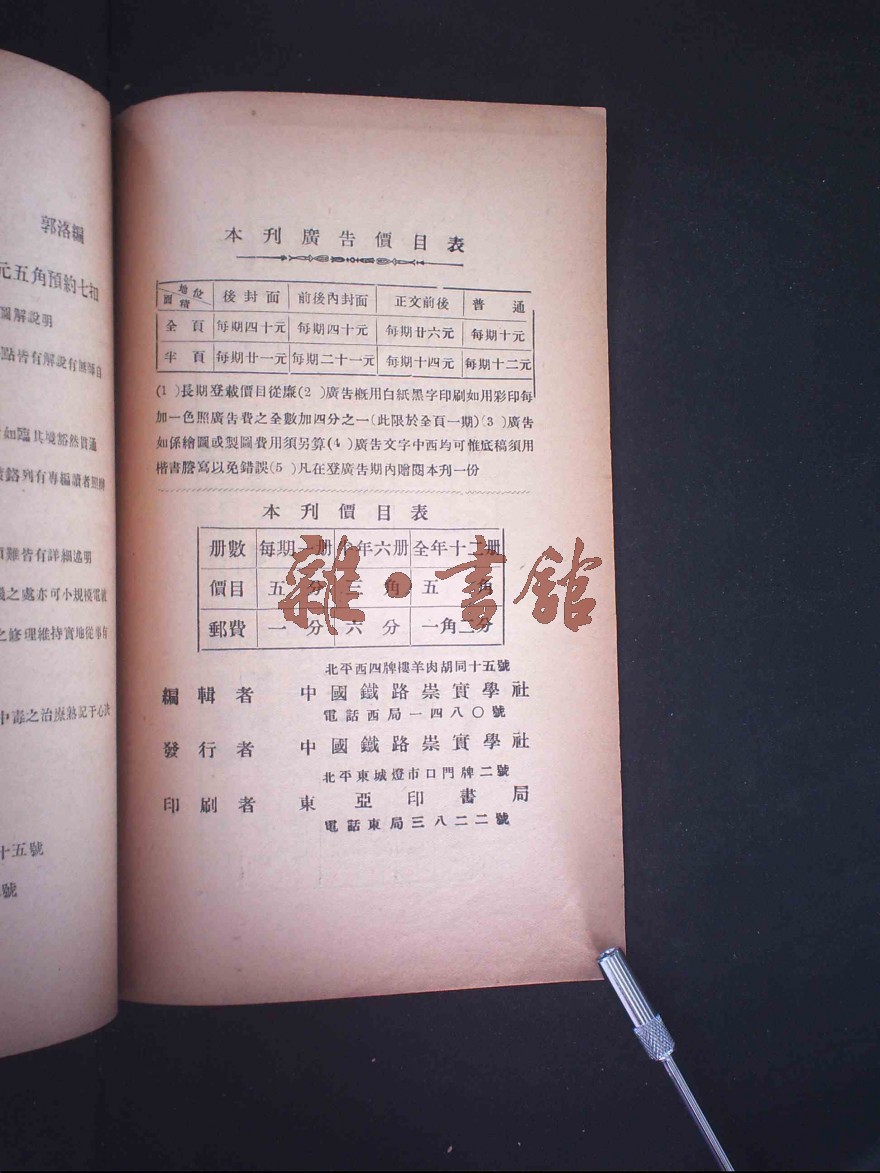 本刊廣告價目表
地位 面積 後封面 前後內封面 正文前後 普通
全頁 每期四十元 每期四十元 每期廿六元 每期十元
半頁 每期廿一元 每期二十一元 每期十四元 每期十二元
(1)長期登載價目從廉(2)廣告概用白紙黑字印刷如用彩印每
加一色照廣告費之全數加四分之一(此限於全頁一期)(3)廣告
如係繪圖或製圖費用須另算(4)廣告文字中西均可惟底稿須用
楷書謄寫以免錯誤(5)凡在登廣告期內贈閱本刊一份
本刊價目表
册數 每期一册 半年六册 全年十二册
價目 五分 三角 五角
郵費 一分 六分 一角二分
雜·書館
北平西四牌樓羊肉胡同十五號
編輯者 中國鐵路崇實學社
電話西局一四八〇號
發行者 中國鐵路崇實學社
北平東城燈市口門牌二號
印刷者 東亞印書局
電話東局三八二二號
郭洛編
元五角預約七扣
圖解說明
點皆有解說有無師自
如臨其境豁然貫通
列有專編讀者照辦
難皆有詳細述明
之處亦可小規模電鍍
之修理維持實地從事有
中毒之治療熟記于心決
十五號
號